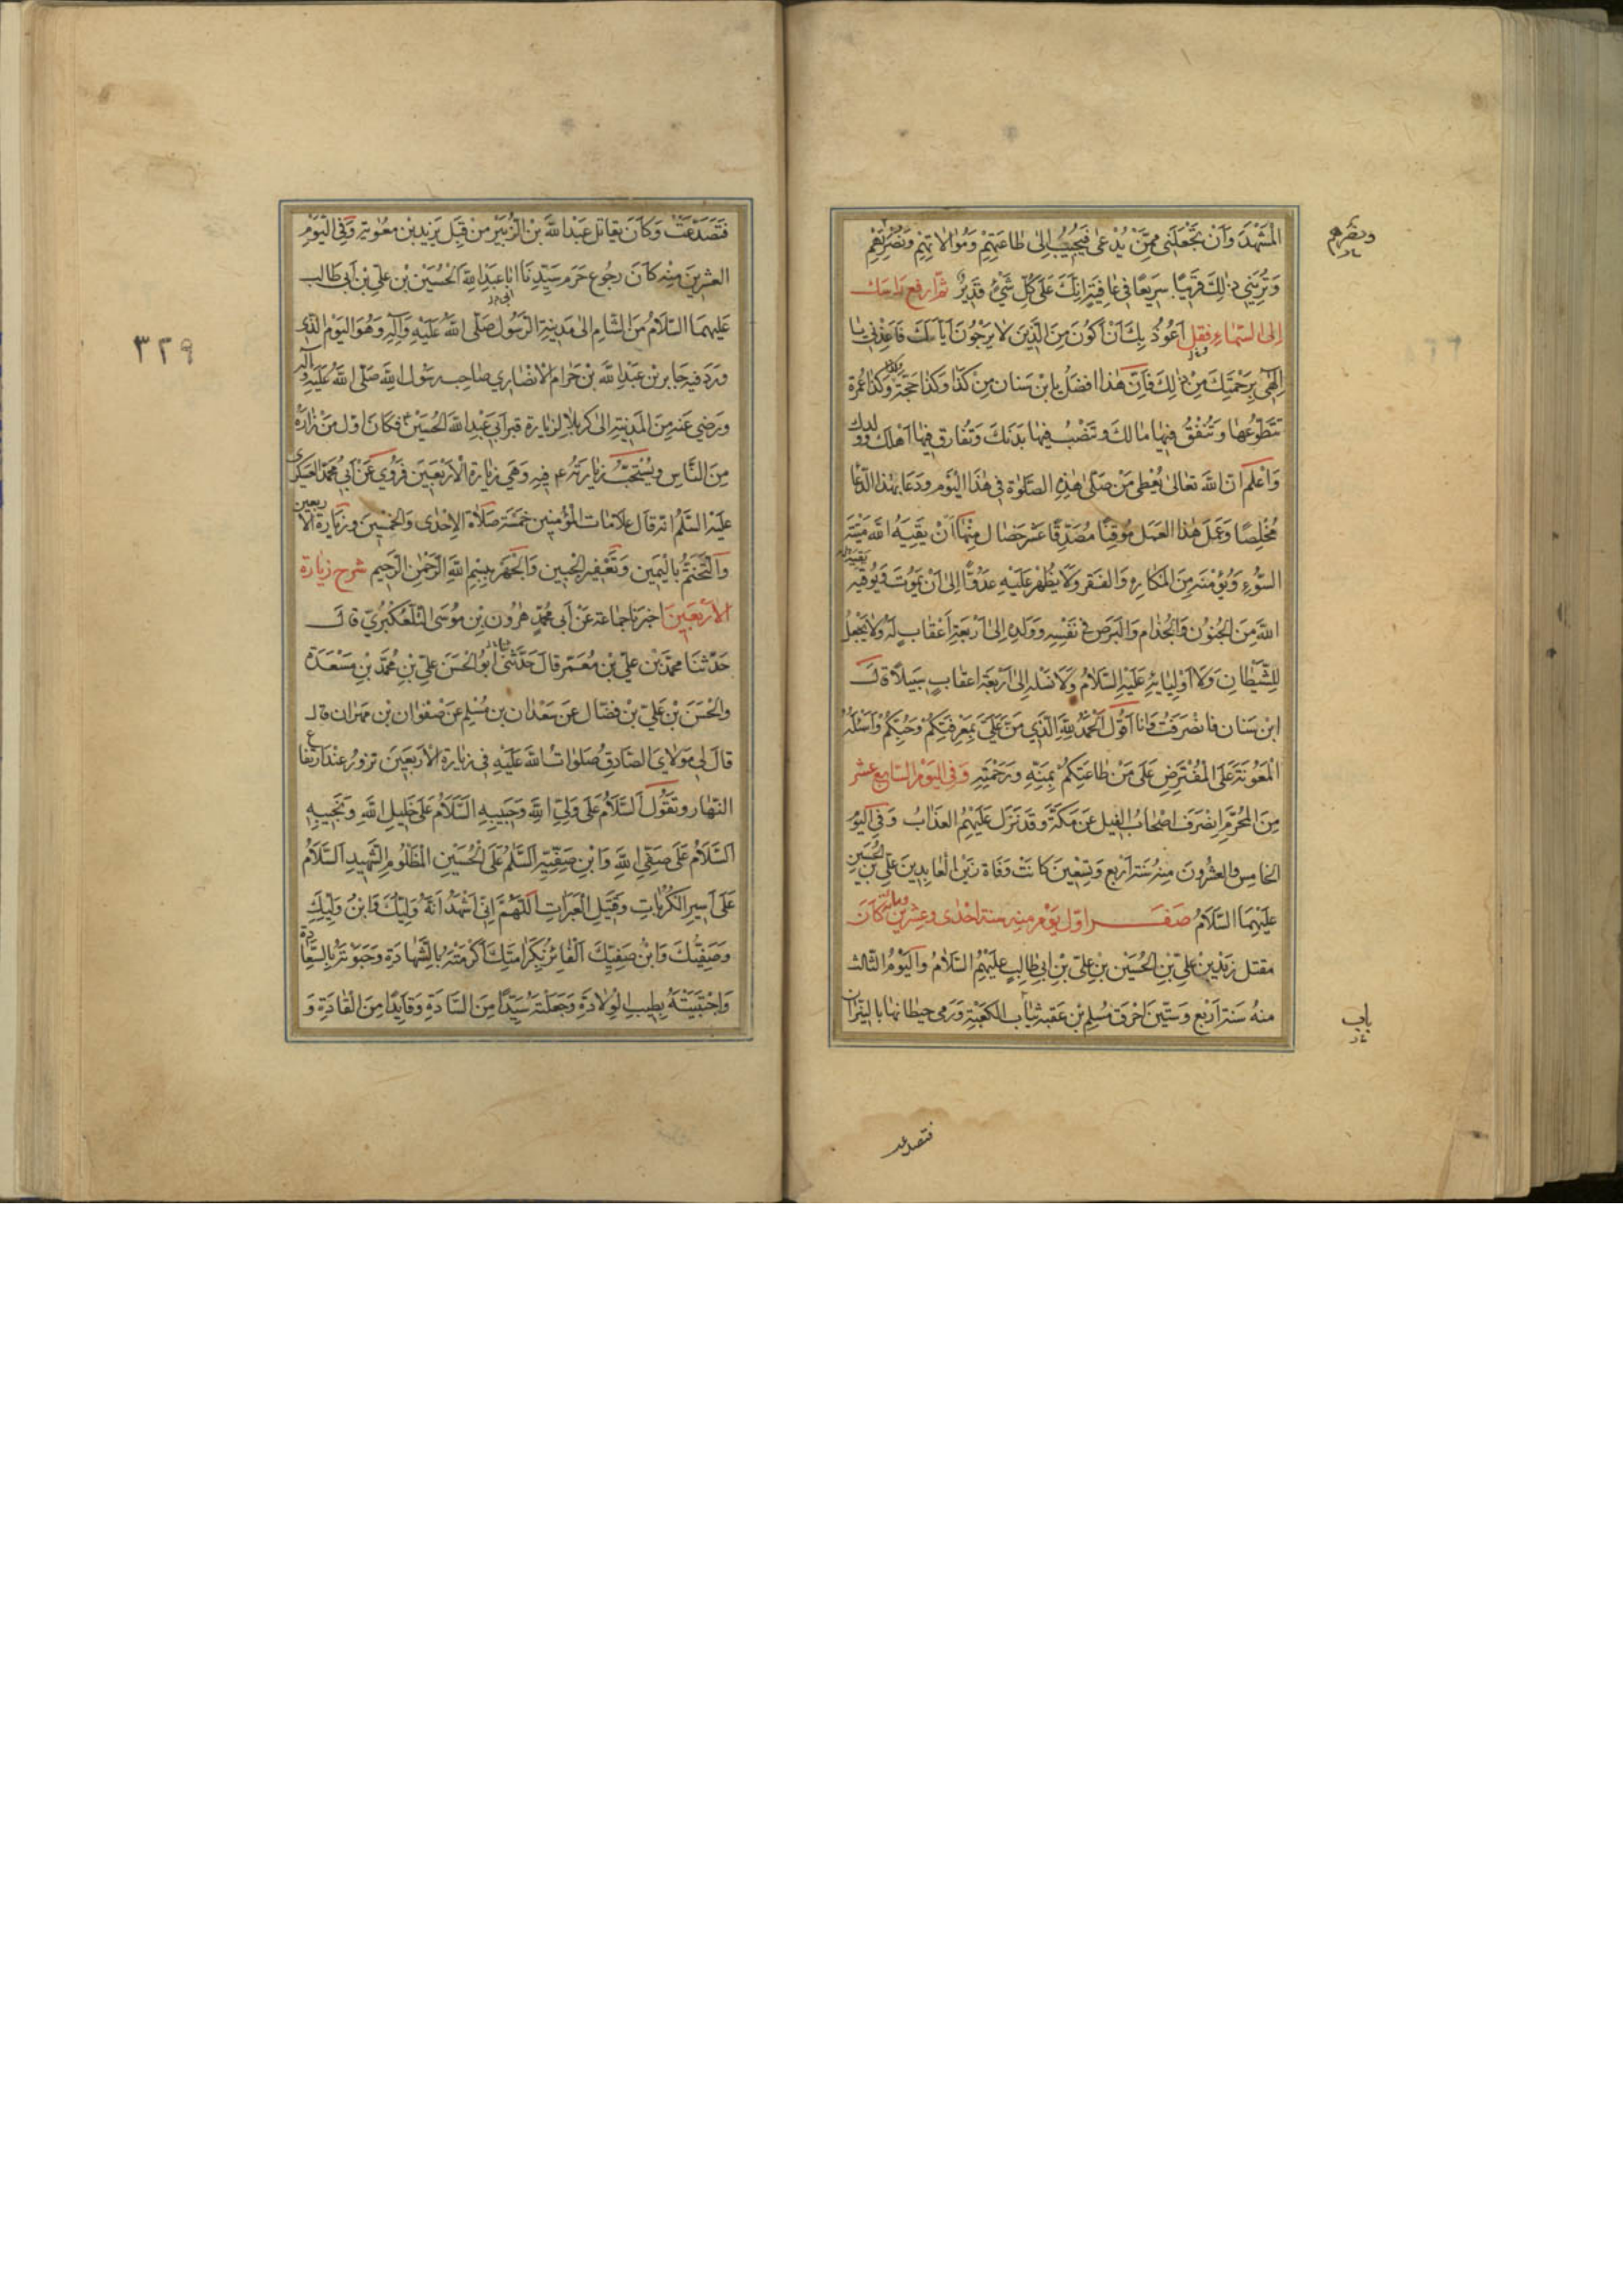 المَشْهَدَ وَأَنْ تَجْعَلَنِي مِمَّنْ يُدْعى فَيُجِيبُ إِلى طاعَتِهِمْ وَمُوالاتِهِمْ وَنَصْرِهِمْ
ونصرهم
وَتُرِيَنِي ذلِكَ قَرِيبًا سَرِيعًا فِي عافِيَةٍ إِنَّكَ عَلى كُلِّ شَيْءٍ قَدِيرٌ ثمّ ارفع راسك
إلى السّماء فقل أَعُوذُ بِكَ أَنْ أَكُونَ مِنَ الَّذِينَ لا يَرْجُونَ أَيّامَكَ فَأَعِذْنِي يا
إِلهِي بِرَحْمَتِكَ مِنْ ذلِكَ فَاِنَّ هذا افضل يا بن سنان مِنْ كذا وكذا حجّة وكذا وكذا عمرة
تتطوّعها وتنفق فيها مالك وتنصب فيها بدنك وتفارق فيها اهلك وولدك
وَاعْلم انّ اللهَ تعالى يُعْطِي مَنْ صلّى هٰذِهِ الصّلوة في هذا اليَوم ودَعَا بهذا الدّعا
مُخْلِصًا وَعَمِلَ هٰذا العَمَل مُوقِنًا مُصَدِّقًا عَشر خصال منها أَنْ يَقِيَهُ الله مَيْتَةَ
السّوءِ وَيُؤْمنَه مِنَ المَكارِهِ وَالفَقر وَلا يُظْهر عَلَيْهِ عَدُوًّا إلى أَنْ يَمُوتَ وَيُوقِيَه
يقيه
اللهُ مِنَ الجُنُون وَالجُذام وَالبَرَص في نَفْسِهِ وَوَلَدِهِ إلى أَرْبَعَةِ أَعْقابٍ لَهُ وَلا يَجْعَلُ
لِلشَّيْطانِ وَلا أَوْلِيائِهِ عَلَيْهِ السَّلامُ وَلا نَسْلِهِ إِلى أَرْبَعَة اعقابٍ سَبيلاً قالَ
ابْن سنان فانصَرَفتُ وَانا أَقُول الحَمْدُ للهِ الَّذِي مَنَّ عَلَيَّ بِمَعْرِفَتِكُمْ وَحُبِّكُمْ وَأَسْأَلُهُ
المَعُونَة عَلَى المُفْتَرَضِ عَلَيَّ مِنْ طاعَتِكُمْ بِمَنِّهِ وَرَحْمَتِهِ وَفي اليَوْم السّابع عشر
مِنَ المُحَرَّم انصَرَفَ اصحابُ الفيل عَنْ مَكَّةَ وَقَد نَزَل عَلَيْهِمُ العَذابُ وَفي اليَوْم
الخامِس والعشْرُون مِنهُ سَنَة أَرْبع وَتِسْعِين كانَتْ وَفاة زَيْن العابِدِينَ عَليّ بن الحُسَينِ
عَلَيْهِمَا السَّلامُ صَفَر اوّل يَوْم مِنه سنة احدى وعشرين ومائة كَانَ
مقتل زَيْدِ بْنِ عَلِيِّ بْنِ الحُسَيْن بْنِ عَلِيِّ بْنِ ابي طالِبٍ عَلَيْهِمُ السَّلامُ وَاليَوْمُ الثّالث
منهُ سَنة أَرْبع وَسِتّين احْرق مُسْلِم بْن عَقبة ثيَاب الكَعْبَة وَرَمى حيطانها بالنّيران
باب
فتصدعت
فَتَصَدَّعَتْ وَكَانَ يقاتل عَبْدَ اللهِ بْن الزُّبَيْر مِنْ قِبَل يَزيد بْن معٰوية وَفِي اليَوْمِ
العشرين مِنْه كَانَ رجُوع حَرَم سَيِّدِنَا ابا عَبْدِ اللهِ الحُسَيْن بْن عَليّ بْن أَبي طَالب
ابي
عَلَيهِمَا السّلامُ مِنَ الشّام إلى مَدِينَة الرّسول صَلّى اللهُ عَلَيْهِ وَآلِهِ وَهُوَ اليَوْم الّذي
ورَدَ فيه جَابِر بْن عَبْدِ الله بْن حَرام الانصَاري صاحب رَسُول الله صَلّى اللهُ عَلَيْهِ وَآله
ورَضي عَنه مِنَ المَدينة إلى كربلاء لزيارة قبر أَبي عَبْدِ الله الحُسَيْن ع فكان اوّل مَنْ زارَهُ
مِنَ النَّاسِ ويُسْتَحَبّ زيارَته ع فيهِ وَهي زيارة الأَرْبَعين فَرُوِي عَنْ أَبي مُحَمَّد العسكري
عَلَيْهِ السَّلم انّه قال علامات المؤمنين خمسة صلاة الإحدى والخمسين وزيارة الأربعين
وَالتَّخَتُّم باليَمِين وَتَعْفِير الجَبِين وَالجَهْر بِبِسْمِ اللهِ الرَّحْمنِ الرَّحِيم شرح زيارة
الأَرْبَعِين اخبرنا جماعة عَنْ أَبي مُحَمَّدٍ هرُون بْنِ مُوسَى التّلعكبُريّ قالَ
حَدَّثنَا محمّد بْن عَليّ بْن مَعْمَر قالَ حَدَّثَنِي ابُو الحَسَن عَليّ بْن مُحَمَّد بْن مَسْعَدة
والحَسَن بْن عَليّ بْن فَضّال عَن سَعْدَان بن مُسْلِم عَنْ صَفْوَان بْن مِهْرَان قال
قالَ لِي مَوْلايَ الصّادِق صَلواتُ اللهِ عَلَيْهِ في زيارة الأَرْبَعِينَ تزورُ عند ارتفاع
النّهار وتقُول السَّلامُ عَلى وَلِيِّ اللهِ وَحَبِيبِهِ السَّلامُ عَلى خَلِيلِ اللهِ وَنَجِيبِهِ
السَّلامُ عَلى صَفِيِّ اللهِ وَابْنِ صَفِيِّهِ السَّلمُ عَلَى الحُسَيْنِ المَظْلُومِ الشَّهِيدِ السَّلامُ
عَلى أَسِيرِ الكُرُباتِ وَقَتِيلِ العَبَراتِ اللّهُمَّ إِنِّي أَشْهَدُ أَنَّهُ وَلِيُّكَ وَابْنُ وَلِيِّكَ
وَصَفِيُّكَ وَابْنُ صَفِيِّكَ الفائِزُ بِكَرامَتِكَ أَكْرَمْتَهُ بِالشَّهادَةِ وَحَبَوْتَهُ بِالسَّعادَة
وَاجْتَبَيْتَهُ بِطِيبِ الوِلادَةِ وَجَعَلْتَهُ سَيِّدًا مِنَ السّادَةِ وَقايِدًا مِنَ القادَةِ وَ
٣٢٩